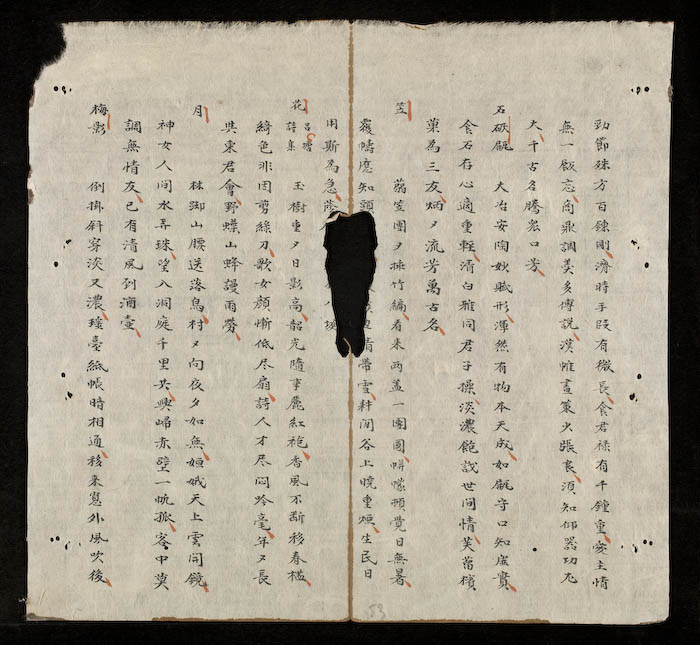 勁節殊方百鍊剛濟時手段有微長食君祿有千鍾重安主情
無一飯忘商鼎調羮多傅說漢帷畫策少張良須知仰器功尤
大千古名騰衆口芳
石砆甌 大冶安陶妙賦形渾然有物本天成如甌守口知虛實
食石存心適重輕清白雅同君子操淡濃飽諳世間情芙蓉檳
菓為三友炳夕流芳萬古名
笠 蒻笠團夕揀竹編看來兩蓋一團圓帡幪頓覺日無暑
覆幬應知 情帶雲耕閒谷上曉重烟生民日
用斯為急
花 呂塘詩集 玉樹重夕日影高韶光隨事麗紅袍香風不斷移春檻
綺色非因剪綵刀歌女顏慚低尽扇詩人才尽閣吟毫年夕長
與東君會野蝶山蜂謾雨勞
月 林踋山腰送落烏村夕向夜夕如無姮娥天上雲開鏡
神女人间水弄珠望入洞庭千里共興歸赤壁一帆孤客中莫
調無情友已有清風到酒壺
梅影 倒掛斜穿淡又濃瑤臺紙帳時相通移來窓外風吹後
53